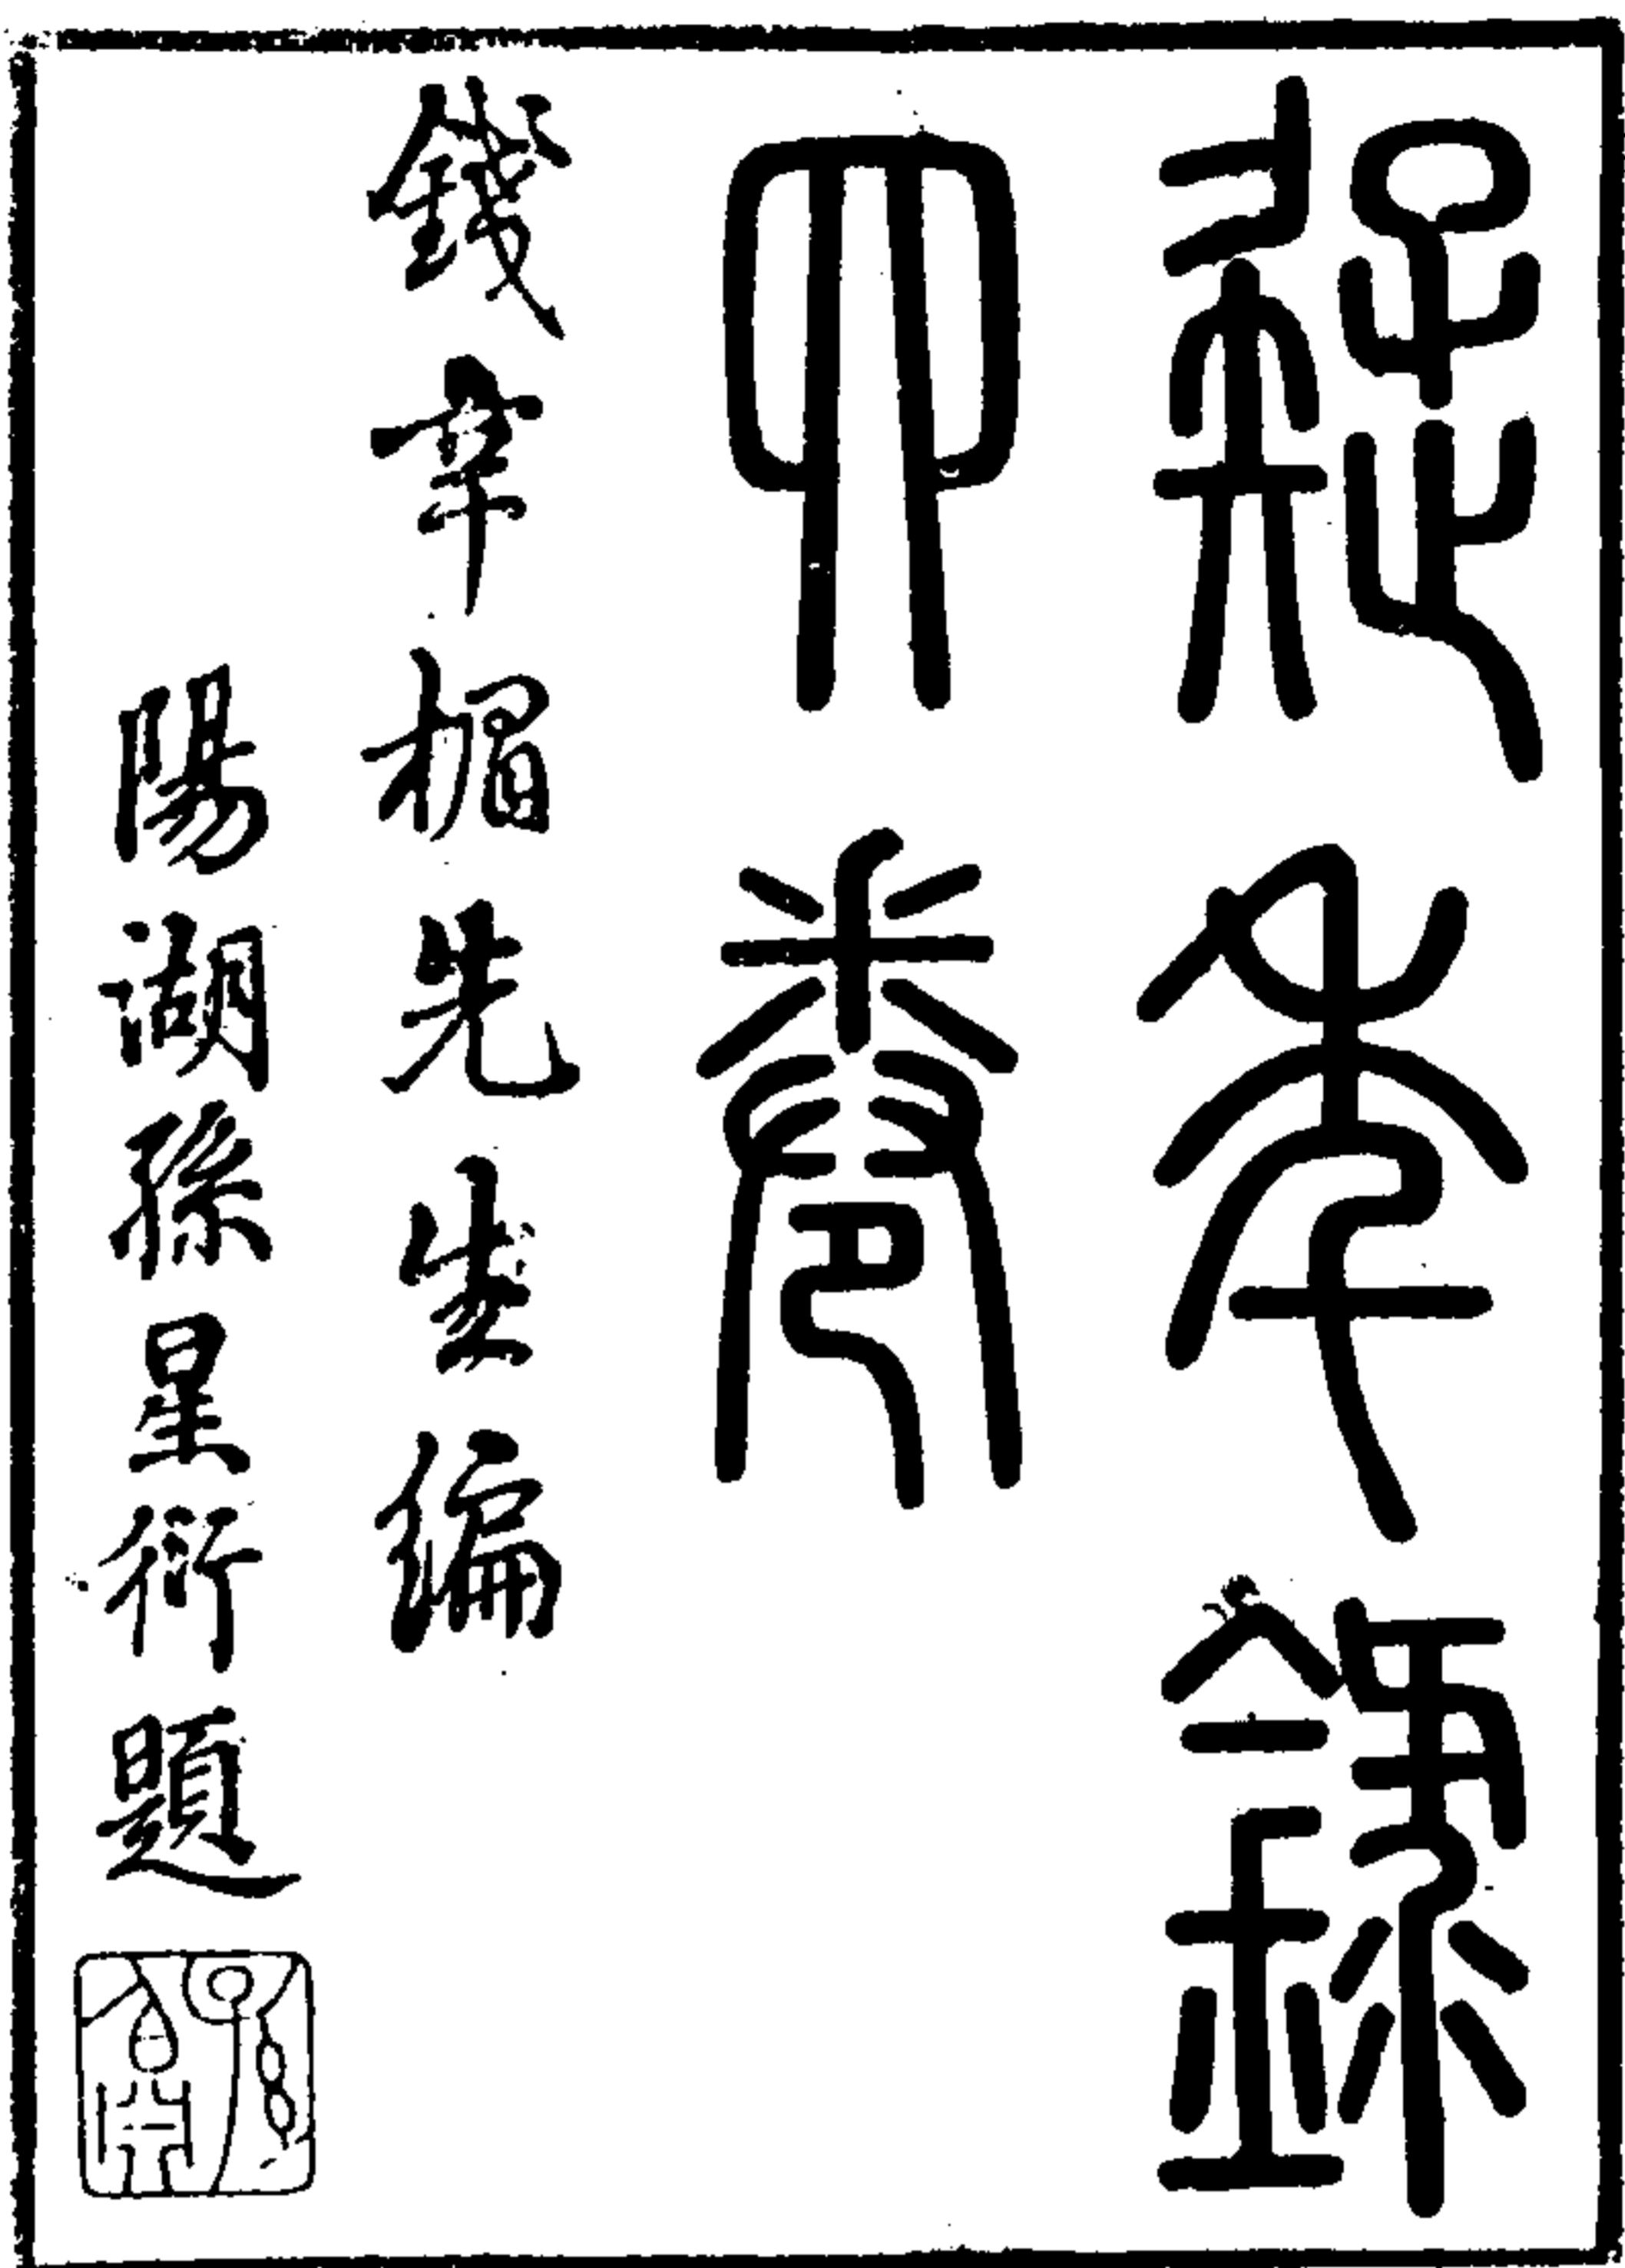 疑年錄
四卷
錢辛楣先生編
陽湖孫星衍題